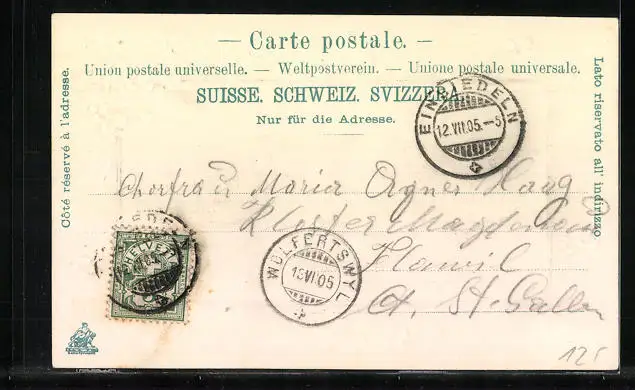 — Carte postale. —
Union postale universelle. — Weltpostverein. — Unione postale universale.
SUISSE. SCHWEIZ. SVIZZERA.
Nur für die Adresse.
Côté réservé à l'adresse.
Lato riservato all' indirizzo
EINSIEDELN
12.VII.05.-5
Chorfrau Maria Agnes Haag
Kloster Magdenau
Flawil
Ct. St. Gallen
WOLFERTSWYL
13VII05
HELVETIA
125